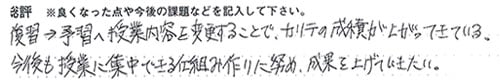 総評 ※良くなった点や今後の課題などを記入して下さい。
復習→予習へ授業内容を変更することで、カリテの成績が上がってきている。
今後も授業に集中できる仕組み作りに努め、成果を上げていきたい。